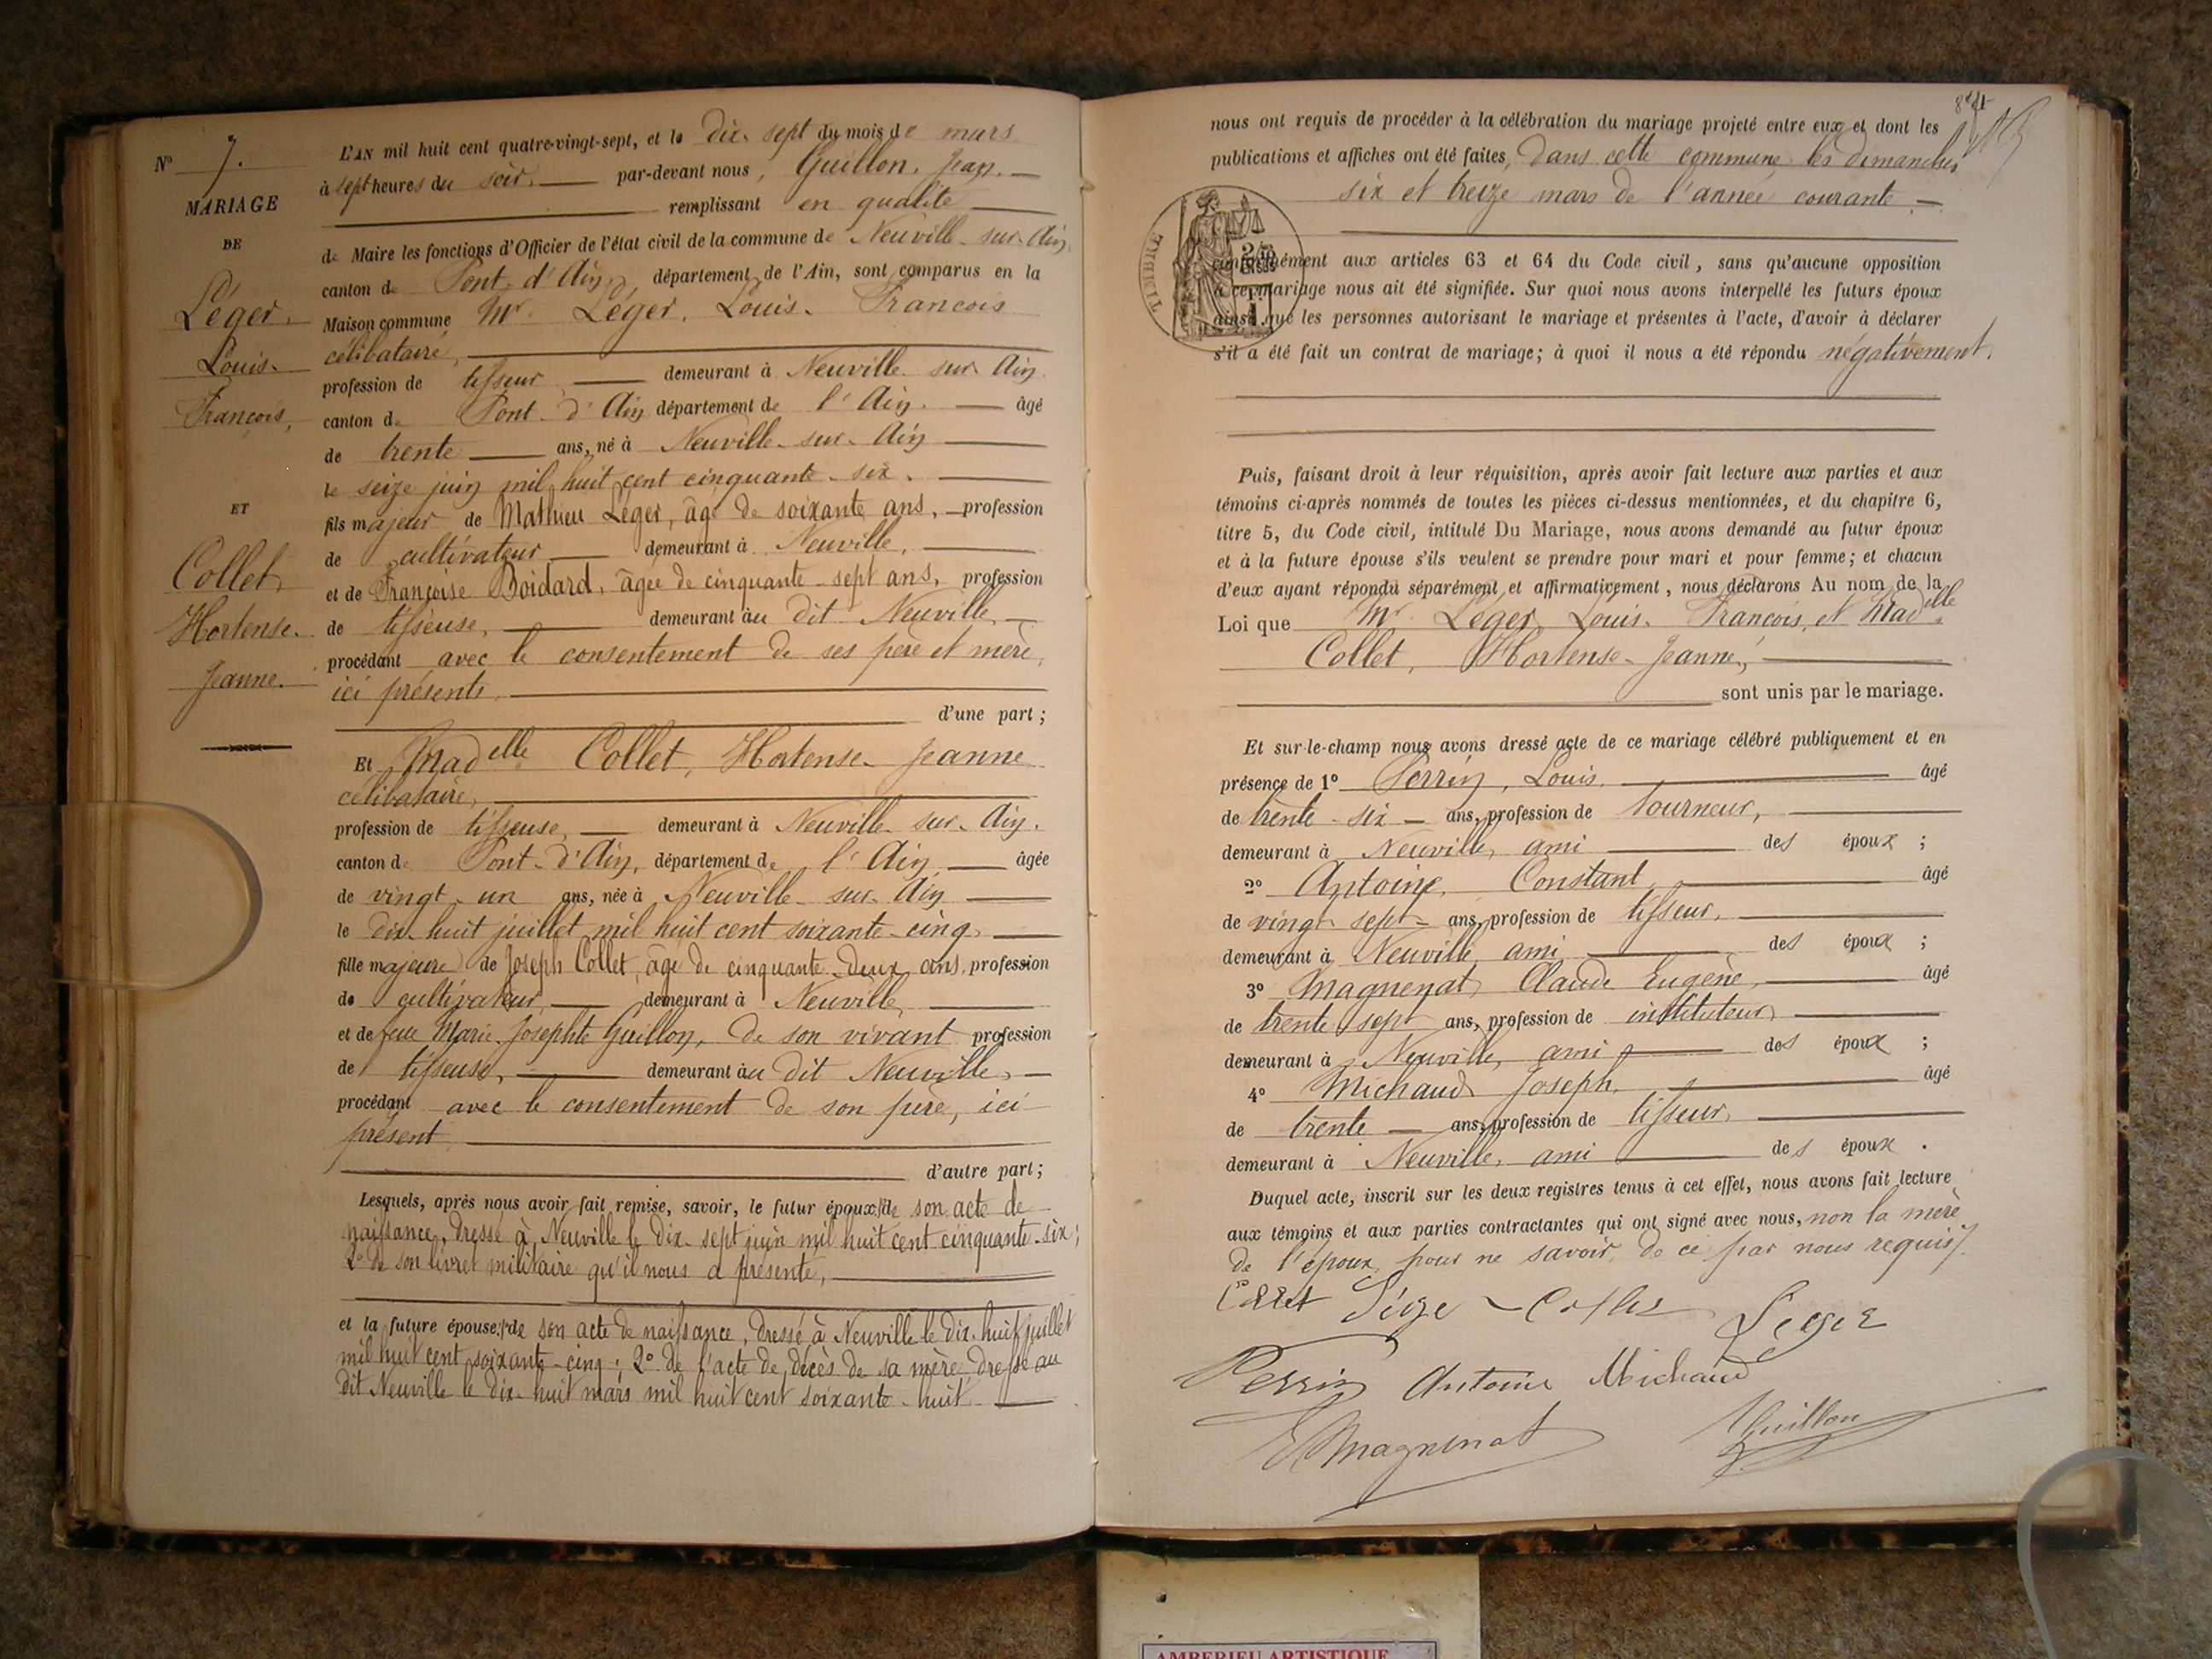 N° 7.
MARIAGE
DE
Léger,
Louis-
François,
ET
Collet,
Hortense-
Jeanne.
L'AN mil huit cent quatre-vingt-sept, et le dix-sept du mois de mars
à sept heures du soir, par-devant nous, Guillon, Jean,
remplissant en qualité
de Maire les fonctions d'Officier de l'état civil de la commune de Neuville-sur-Ain,
canton de Pont-d'Ain, département de l'Ain, sont comparus en la
Maison commune Mr. Léger, Louis-François
célibataire,
profession de tisseur demeurant à Neuville-sur-Ain,
canton de Pont-d'Ain département de l'Ain. âgé
de trente ans, né à Neuville-sur-Ain
le seize juin mil huit cent cinquante-six.
fils majeur de Mathieu Léger, âgé de soixante ans, profession
de cultivateur demeurant à Neuville,
et de Françoise Boidard, âgée de cinquante-sept ans, profession
de tisseuse, demeurant au dit Neuville,
procédant avec le consentement de ses père et mère,
ici présents.
d'une part;
Et Madelle Collet, Hortense-Jeanne
célibataire,
profession de tisseuse, demeurant à Neuville-sur-Ain,
canton de Pont-d'Ain, département de l'Ain, âgée
de vingt-un ans, née à Neuville-sur-Ain
le dix-huit juillet mil huit cent soixante-cinq,
fille majeure de Joseph Collet, âgé de cinquante-deux ans, profession
de cultivateur, demeurant à Neuville,
et de feue Marie-Josephte Guillon, de son vivant profession
de tisseuse, demeurant au dit Neuville,
procédant avec le consentement de son père, ici
présent
d'autre part;
Lesquels, après nous avoir fait remise, savoir, le futur époux: 1° de son acte de
naissance, dressé à Neuville le dix-sept juin mil huit cent cinquante-six;
2° de son livret militaire qu'il nous a présenté,
et la future épouse: 1° de son acte de naissance, dressé à Neuville le dix-huit juillet
mil huit cent soixante-cinq; 2° de l'acte de décès de sa mère, dressé au
dit Neuville le dix-huit mars mil huit cent soixante-huit
nous ont requis de procéder à la célébration du mariage projeté entre eux et dont les
publications et affiches ont été faites, dans cette commune les dimanches
six et treize mars de l'année courante
TIMBRE
conformément aux articles 63 et 64 du Code civil, sans qu'aucune opposition
à ce mariage nous ait été signifiée. Sur quoi nous avons interpellé les futurs époux
ainsi que les personnes autorisant le mariage et présentes à l'acte, d'avoir à déclarer
s'il a été fait un contrat de mariage; à quoi il nous a été répondu négativement.
Puis, faisant droit à leur réquisition, après avoir fait lecture aux parties et aux
témoins ci-après nommés de toutes les pièces ci-dessus mentionnées, et du chapitre 6,
titre 5, du Code civil, intitulé Du Mariage, nous avons demandé au futur époux
et à la future épouse s'ils veulent se prendre pour mari et pour femme; et chacun
d'eux ayant répondu séparément et affirmativement, nous déclarons Au nom de la
Loi que Mr Léger, Louis-François, et Madelle
Collet, Hortense-Jeanne,
sont unis par le mariage.
Et sur-le-champ nous avons dressé acte de ce mariage célébré publiquement et en
présence de 1° Perrin, Louis. âgé
de trente-six ans, profession de tourneur,
demeurant à Neuville, ami des époux;
2° Antoine, Constant, âgé
de vingt-sept ans, profession de tisseur,
demeurant à Neuville, ami des époux;
3° Magnenat, Claude Eugène, âgé
de trente-sept ans, profession de instituteur,
demeurant à Neuville, ami des époux;
4° Michaud Joseph, âgé
de trente ans, profession de tisseur,
demeurant à Neuville, ami des époux.
Duquel acte, inscrit sur les deux registres tenus à cet effet, nous avons fait lecture
aux témoins et aux parties contractantes qui ont signé avec nous, non la mère
de l'époux, pour ne savoir, de ce par nous requis.
Collet Leger
Perrin Antoine Michaud
E Magnenat Guillon
AMBERIEU ARTISTIQUE